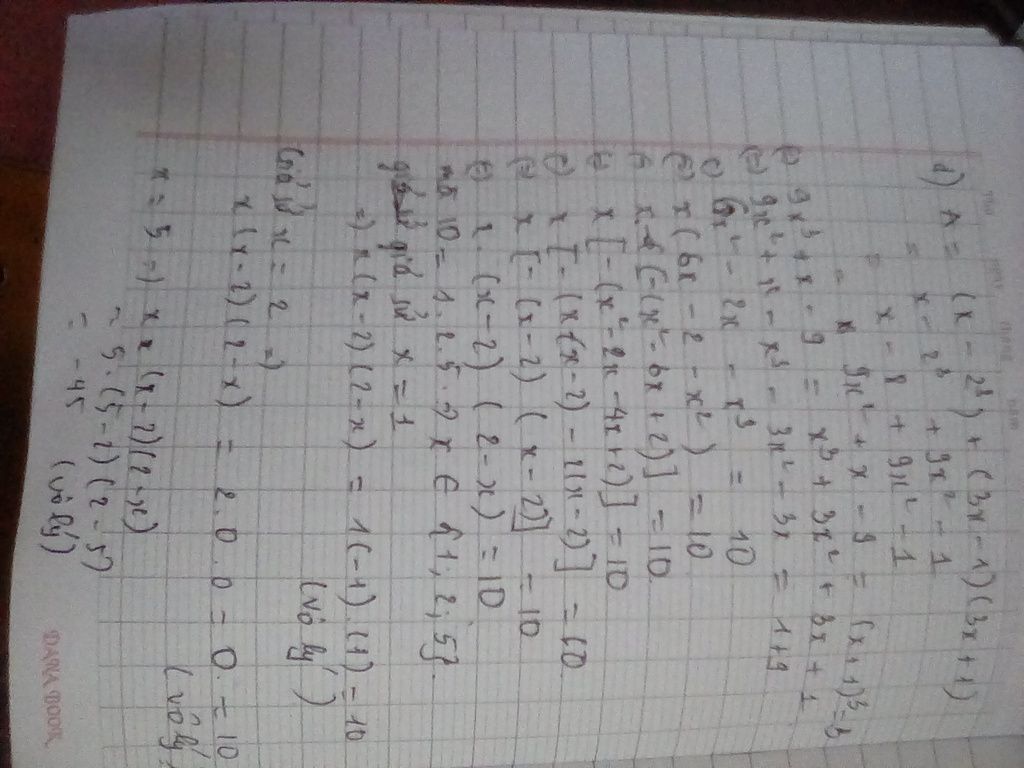 d) A = (x - 2³) + (3x - 1)(3x + 1)
= x - 2³ + 9x² - 1
= x - 8 + 9x² - 1
= 9x² + x - 9 = (x + 1)³ - 3
9x³ + x - 9 = x³ + 3x² + 3x + 1
9x² + x - x³ - 3x² - 3x = 1 + 9
6x² - 2x - x³ = 10
x (6x - 2 - x²) = 10
x [-(x² - 6x + 2)] = 10
x [-(x² - 2x - 4x + 2)] = 10
x [-(x(x - 2) - 2(x - 2)] = 10
x [-(x - 2) (x - 2)] = 10
x. (x - 2) (2 - x) = 10
mà 10 = 1.2.5. => x ∈ {1, 2, 5}.
giả sử x = 1
=> x (x - 2) (2 - x) = 1(-1).(1) = 10
(vô lý)
Giả sử x = 2 =>
x (x - 2) (2 - x) = 2.0.0 = 0 = 10
(vô lý)
x = 5 => x (x - 2) (2 - x)
= 5. (5 - 2) (2 - 5)
= -45
(vô lý)
DARIA BOOK